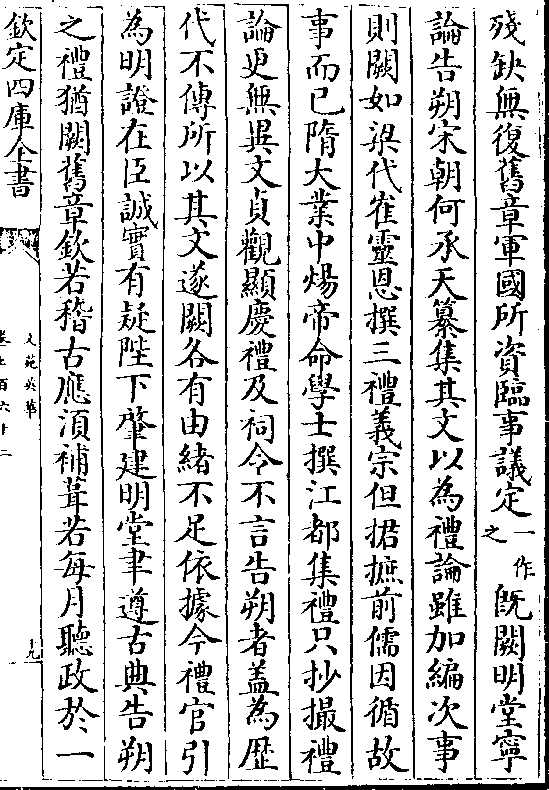 殘缺無復舊章軍國所資臨事議定一作之既闕明堂寧
論告朔宋朝何承天纂集其文以為禮論雖加編次事
則闕如梁代崔靈恩撰三禮義宗但捃摭前儒因循故
事而已隋大業中煬帝命學士撰江都集禮只抄撮禮
論更無異文貞觀顯慶禮及祠令不言告朔者蓋為歷
代不傳所以其文遂闕各有由緒不足依據今禮官引
為明證在臣誠實有疑陛下肇建明堂聿遵古典告朔
之禮猶闕舊章欽若稽古應須補葺若每月聽政於一
欽定四庫全書
文苑英華
卷七百六十二
十九